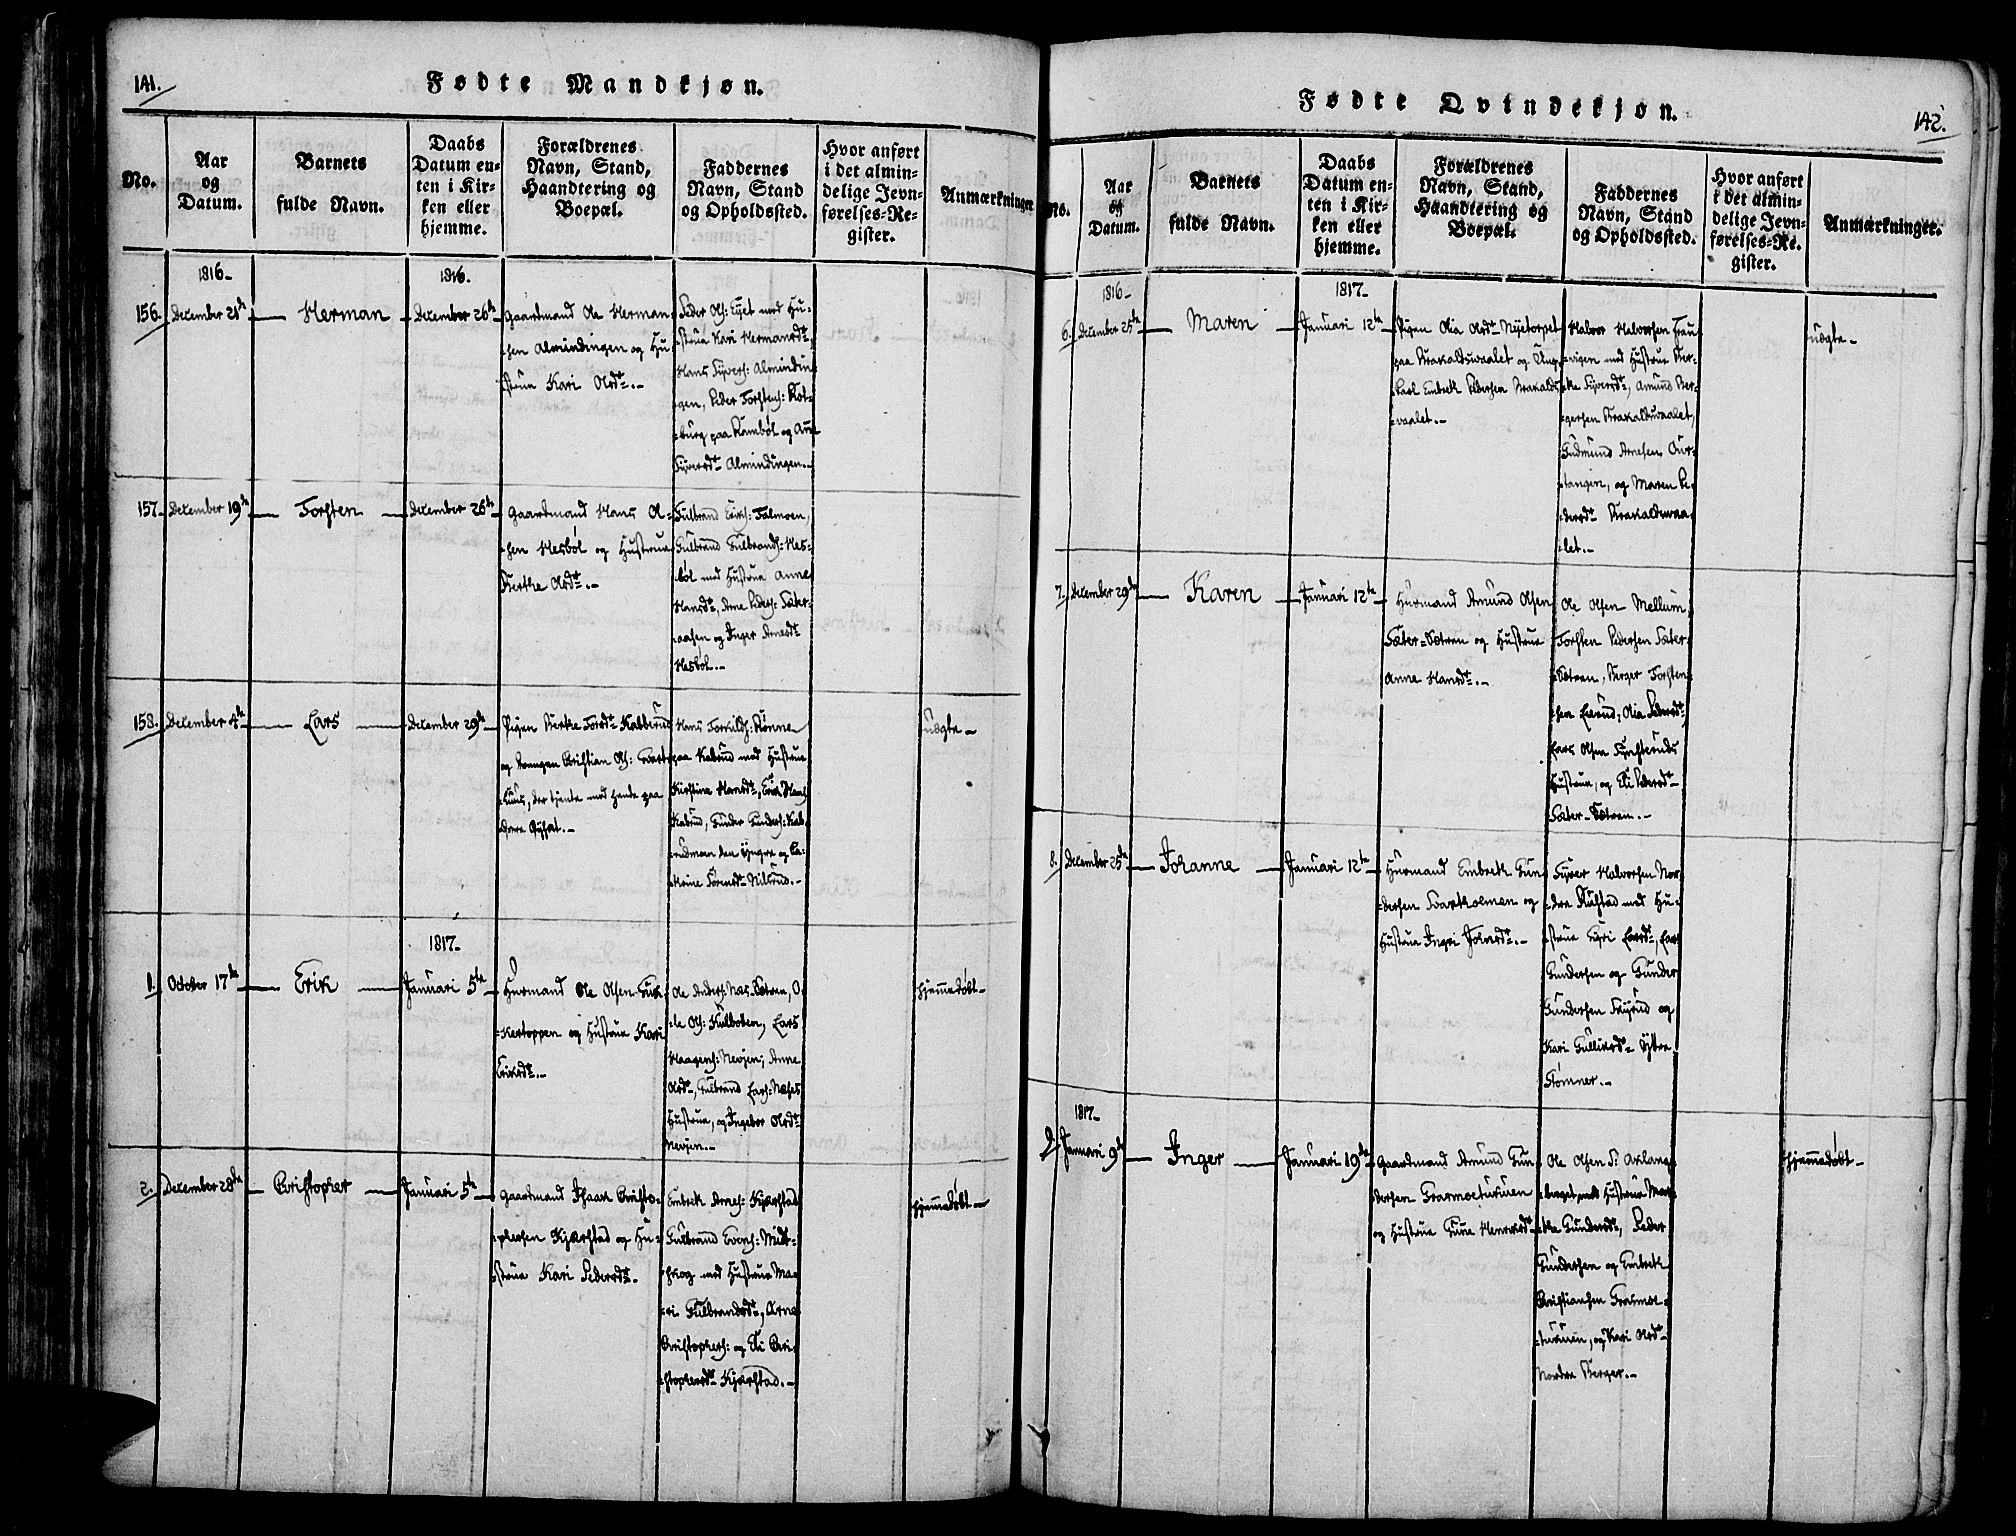 141.
Fødte Mandkjøn.
No.
Aar
og
Datum.
Barnets
fulde Navn.
Daabs
Datum en-
ten i Kir-
ken eller
hjemme.
Forældrenes
Navn, Stand,
Haandtering og
Boepæl.
Faddernes
Navn, Stand
og Opholdssted.
Hvor anført
i det almin-
delige Jevn-
førelses-Re-
gister.
Anmærkninger
1816-
1816.
156.
December 21de
Herman
December 26de
Gaardmand Ole Herman-
-sen Almindingen og Hu-
-strue Kari Olsdr.-
Peder Ols: Eyet med Hu-
-strue Kari Hermansdr,
Hans Syvers: Almindin-
-gen, Peder Torstens: Rot-
-burg paa Rambøl og Anne
Syversdr Almindingen.-
157.
December 19de
Torsten
December 26de
Gaardmand Hans Ol-
-sen Hesbøl og Hustrue
Berthe Olsdr.-
Gulbrand Eriks: Talmoen,
Gulbrand Gulbrands: Hes-
-bøl med Hustrue Anne
Hansdr, Arne Peders: Sæter-
-aasen og Inger Arnesdr
Hesbøl.-
158.
December 4de
Lars
December 29de
Pigen Berthe Torsdr Kabberud
og Drengen Christian Ols: Svart-
-huus, der tjente med hende paa
Dorre
Hans Torkilds: Rønne
paa Kabrud med Hustrue
Kirstine Hansdr, Erik Hans:
Kabrud, Gunder Gunders: Kab-
-rudmoen den yngre og Ca-
-thrine Sørensdr Nilsrud.-
Uægte-
1817-
1.
October 17de
Erik
Januari 5te
Huusmand Ole Olsen Guk-
-kertoppen og Hustrue Kari
Eriksdr.-
Ole Anders: Næs-Sætren, O-
-le Ols: Kulboten, Lars
Haagens: Nevjen, Anne
Olsdr, Gulbrand Lars: Næses
Hustrue, og Ingebor Olsdr
Nevjen.-
Hjemmedøbt-
2.
December 28de
Christopher
Januari 5te
Gaardmand Isaak Christo-
-phersen Kjærstad og Hu-
-strue Kari Pedersdr.-
Embrek Arnes: Kjærstad
Gulbrand Evens: Midt-
-skog med Hustrue Ma-
-ri Gulbrandsdr, Arne
Christophers: og Eli Chri-
-stophersdr Kjærstad.-
Hjemmedøbt-
142.
Fødte Qvindekjøn.
No.
Aar
og
Datum.
Barnets
fulde Navn.
Daabs
Datum en-
ten i Kir-
ken eller
hjemme.
Forældrenes
Navn, Stand,
Haandtering og
Boepæl.
Faddernes
Navn, Stand
og Opholdssted.
Hvor anført
i det almin-
delige Jevn-
førelses-Re-
gister.
Anmærkninger.
1816-
1817-
6.
December 25de
Maren
Januari 12te
Pigen Olia Olsdr Nyetorpet
paa Brakaldsvaalet og Ung-
-karl Embrek Pedersen Brakalds-
-vaalet.-
Halvor Halvorsen Trau-
-vigen med Hustrue Ber-
-the Syversdr, Amund Ber-
-gersen Brakaldsvaalet,
Gudmund Arnesen Our-
-tangen, og Maren Pe-
-dersdr Brakaldsvaa-
-let.-
Uægte-
7.
December 29de
Karen
Januari 12te
Huusmand Amund Olsen
Sæter-Sætren og Hustrue
Anne Hansdr.-
Ole Olsen Mellum,
Torsten Pedersen Sæter-
-Sætren, Berger Torsten-
-sen Lierud, Olia Pedersdr,
Lars Olsen
Hustrue, og Eli Pedersdr
Sæter-Sætren.-
8.
December 25de
Johanne
Januari 12te
Huusmand Embrek Gun-
-dersen Svartholmen og
Hustrue Ingri Johnsdr.-
Syver Halvorsen Nor-
-dre Rustad med Hu-
-strue Guri Larsdr, Lars
Gundersen og Gunder
Gundersen Skyrud og
Kari Gulliksdr Øjtre
Stømner.-
1817-
9.
Januari 9de
Inger
Januari 19de
Gaardmand Amund Gun-
-dersen Grasmoeturuen
og Hustrue Gune Henriksdr-
Ole Olsen S: Oklang-
-berget med Hustrue Mar-
-the Gundersdr, Peder
Gundersen og Embrek
Christiansen Grasmoe-
-turuen, og Kari Olsdr
Nordre Berger.-
Hjemmedøbt-